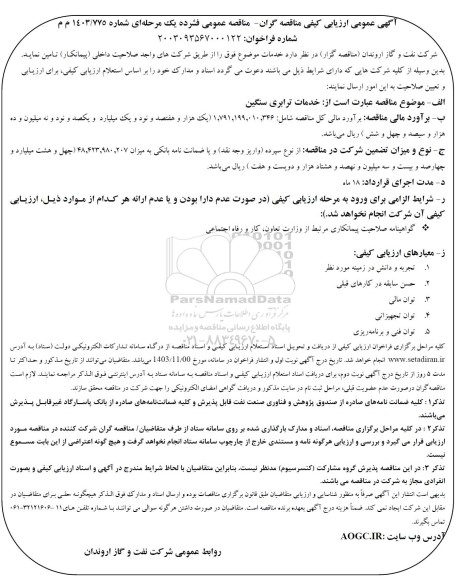 آگهی عمومی ارزیابی کیفی مناقصه گران- مناقصه عمومی فشرده یک مرحله‌ای شماره ۱۴۰۳/۷۷۵ م م
شماره فراخوان: ۲۰۰۳۰۹۳۵۶۷۰۰۰۱۲۲
شرکت نفت و گاز اروندان (مناقصه گزار) در نظر دارد خدمات موضوع فوق را از طریق شرکت های واجد صلاحیت داخلی (پیمانکار) تامین نماید.
بدین وسیله از کلیه شرکت هایی که دارای شرایط ذیل می باشند دعوت می گردد اسناد و مدارک خود را بر اساس استعلام ارزیابی کیفی، برای ارزیابی
و تعیین صلاحیت به این امور ارسال نمایند:
الف- موضوع مناقصه عبارت است از: خدمات ترابری سنگین
ب- برآورد مالی مناقصه: برآورد مالی کل مناقصه شامل: ۱,۷۹۱,۱۹۹,۰۱۰,۳۴۶ (یک هزار و هفتصد و نود و یک میلیارد و یکصد و نود و نه میلیون و ده
هزار و سیصد و چهل و شش ) ریال می‌باشد.
ج- نوع و میزان تضمین شرکت در مناقصه: از نوع سپرده (واریز وجه نقد) و یا ضمانت نامه بانکی به میزان ۴۸,۴۲۳,۹۸۰,۲۰۷ (چهل و هشت میلیارد و
چهارصد و بیست و سه میلیون و نهصد و هشتاد هزار و دویست و هفت ) ریال می‌باشد.
د- مدت اجرای قرارداد: ۱۸ ماه
ر- شرایط الزامی برای ورود به مرحله ارزیابی کیفی (در صورت عدم دارا بودن و یا عدم ارائه هر کدام از موارد ذیل، ارزیابی
کیفی آن شرکت انجام نخواهد شد.):
❖ گواهینامه صلاحیت پیمانکاری مرتبط از وزارت تعاون، کار و رفاه اجتماعی
ز- معیارهای ارزیابی کیفی:
۱. تجربه و دانش در زمینه مورد نظر
۲. حسن سابقه در کارهای قبلی
۳. توان مالی
۴. توان تجهیزاتی
۵. توان فنی و برنامه‌ریزی
ParsNamadData
پایگاه اطلاع رسانی مناقصه و مزایده
کلیه مراحل برگزاری فراخوان ارزیابی کیفی از دریافت و تحویل اسناد استعلام ارزیابی کیفی و اسناد مناقصه از درگاه سامانه تدارکات الکترونیکی دولت (ستاد) به آدرس
www.setadiran.ir انجام خواهد شد. تاریخ درج آگهی نوبت اول و انتشار فراخوان در سامانه، مورخ 1403/11/00 می‌باشد. متقاضیان می‌توانند از تاریخ مذکور و حداکثر تا
مدت ۵ روز از تاریخ درج آگهی نوبت دوم، برای دریافت اسناد استعلام ارزیابی کیفی و اسناد مناقصه به سامانه ستاد به آدرس اینترنتی فوق الذکر مراجعه نمایند. لازم است
مناقصه‌گران درصورت عدم عضویت قبلی، مراحل ثبت نام در سایت مذکور و دریافت گواهی امضای الکترونیکی را جهت شرکت در مناقصه محقق سازند.
تذکر۱: کلیه ضمانت نامه‌های صادره از صندوق پژوهش و فناوری صنعت نفت قابل پذیرش و کلیه ضمانت‌نامه‌های صادره از بانک پاسارگاد غیرقابل پذیرش
می‌باشند.
تذکر۲ : در کلیه مراحل برگزاری مناقصه، اسناد و مدارک بارگذاری شده بر روی سامانه ستاد از طرف متقاضیان/ مناقصه گران شرکت کننده در مناقصه مورد
ارزیابی قرار می گیرد و بررسی و ارزیابی هرگونه نامه و مستندی خارج از چارچوب سامانه ستاد انجام نخواهد گرفت و هیچ گونه اعتراضی از این بابت مسموع
نیست.
تذکر ۳: در این مناقصه پذیرش گروه مشارکت (کنسرسیوم) مدنظر نیست. بنابراین متقاضیان با لحاظ شرایط مندرج در آگهی و اسناد ارزیابی کیفی و بصورت
انفرادی مجاز به شرکت در مناقصه می باشند.
بدیهی است انتشار این آگهی صرفاً به منظور شناسایی و ارزیابی متقاضیان طبق قانون برگزاری مناقصات بوده و ارسال اسناد و مدارک فوق الذکر هیچگونه حقی برای متقاضیان در
مقابل این شرکت ایجاد نمی کند. ضمناً هزینه درج آگهی بعهده برنده مناقصه است. متقاضیان در صورت داشتن هرگونه سوالی می توانند با شماره تلفن های ۱۱ -۳۲۱۲۱۶۰۶-۰۶۱
تماس بگیرند.
آدرس وب سایت :AOGC.IR
روابط عمومی شرکت نفت و گاز اروندان